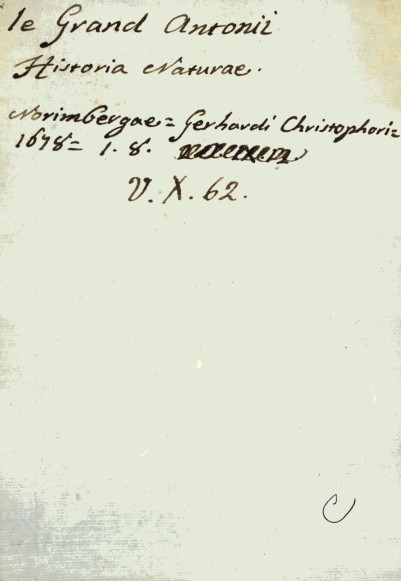 le Grand Antonii
Historia Naturae.
Norimbergae= Gerhardi Christophori=
1678= 1. 8.
V. X. 62.
C